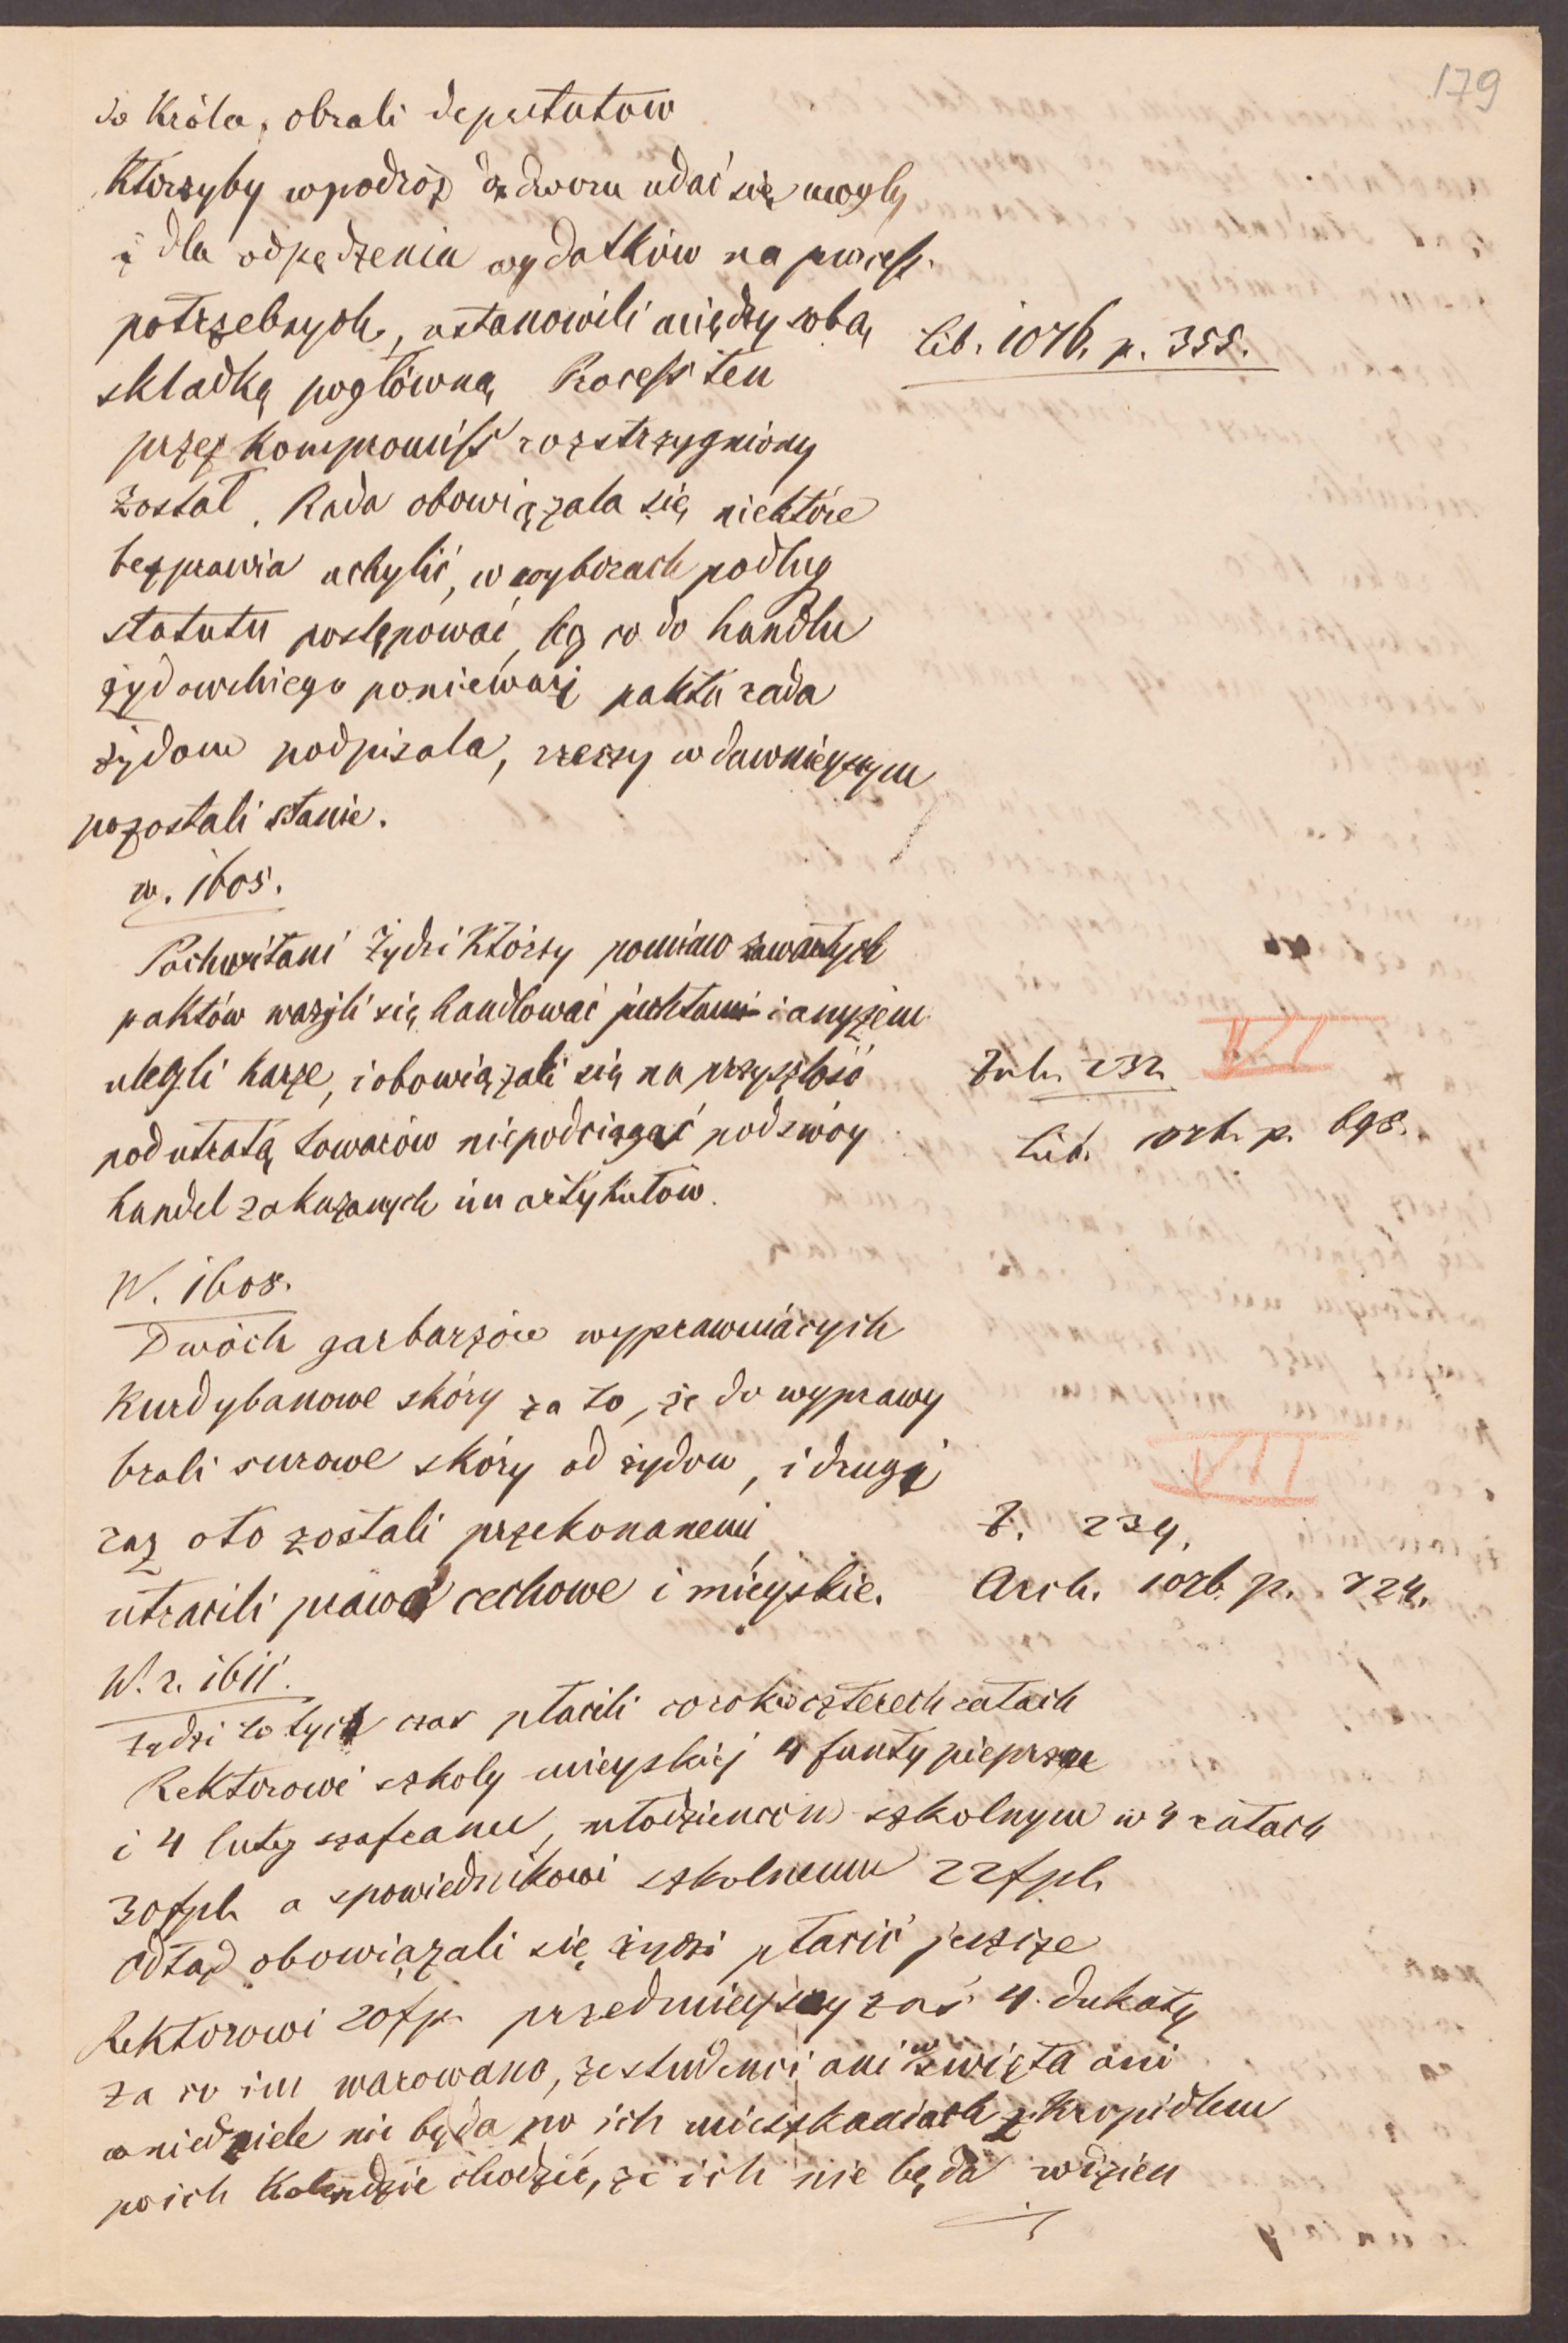 179
do Króla, obrali deputatów
Którzyby w podróż do dworu udać się mogly
i dla odpędzenia wydatków na process
potrzebnych, ustanowili między sobą Lib. 1076. p. 355.
składkę pogłówną Process ten
przez Kompromiss rozstrzygniony
został. Rada obowiązala się niektóre
bezprawia uchylić, w wyborach podług
statutu postępować, lecz co do handlu
żydowskiego ponieważ pakta rada
żydom podpisala, rzeczy w dawnieyszym
pozostali stanie.
w. 1605.
Pochwitani Żydzi Którzy pomimo zawartych
paktów ważyli się handlować juchtami i anyżem
ulegli karze, i obowiązali się na przyszłość Zub. 232 VI
pod utratą towarów niepodciągać pod swóy Lib. 1076. p. 698.
handel zakazanych im artykułów.
W. 1608.
Dwóch garbarzów wyprawuiących
Kurdybanowe skóry za to, że do wyprawy
brali surowe skóry od żydow, i drugi VII
raz oto zostali przekonanemi, Z. 234.
utracili prawa cechowe i mieyskie. Arch. 1076. p. 724.
W. r. 1611.
Żydzi do tych czas płacili co rok w czterech ratach
Rektorowi szkoly mieyskiej 4 funty pieprzu
i 4 luty szafranu, młodziencom szkolnym w 4 ratach
30 fpl. a spowiednikowi szkolnemu 22 fpl.
odtąd obowiązali się żydzi płacić jeszcze
Rektorowi 20 fp. przedmieyscy zaś 4. dukaty
za co im warowano, że studenci ani w święta ani
w niedziele nie będa po ich mieszkaniach z Kropidlem
po ich Kolendzie chodzić, że ich nie będa więzien